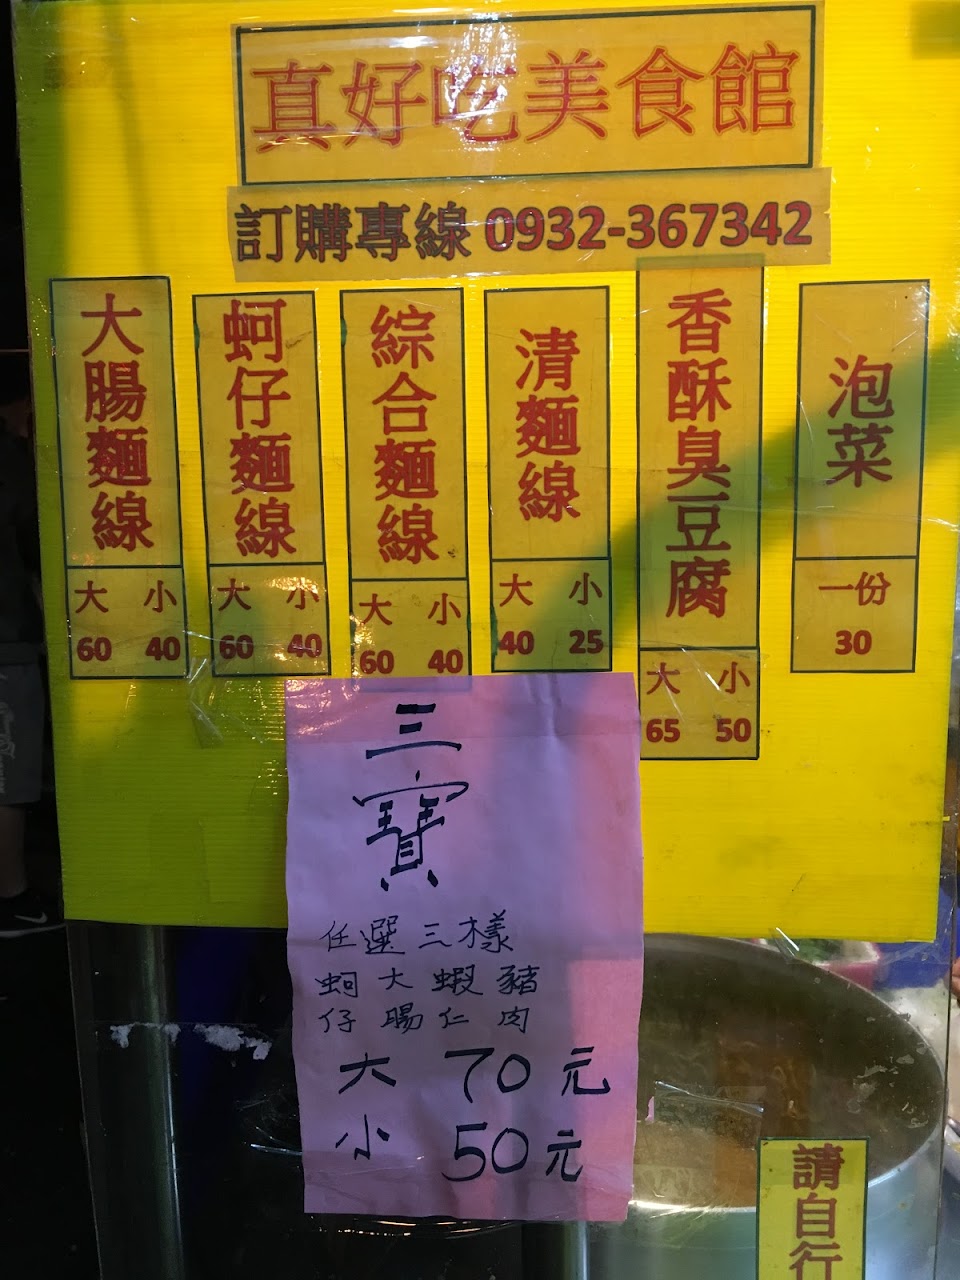 真好吃美食館
訂購專線 0932-367342
大腸麵線
大 小
60 40
蚵仔麵線
大 小
60 40
綜合麵線
大 小
60 40
清麵線
大 小
40 25
香酥臭豆腐
大 小
65 50
泡菜
一份
30
三寶
任選三樣
蚵仔 大腸 蝦仁 豬肉
大 70元
小 50元
請自行